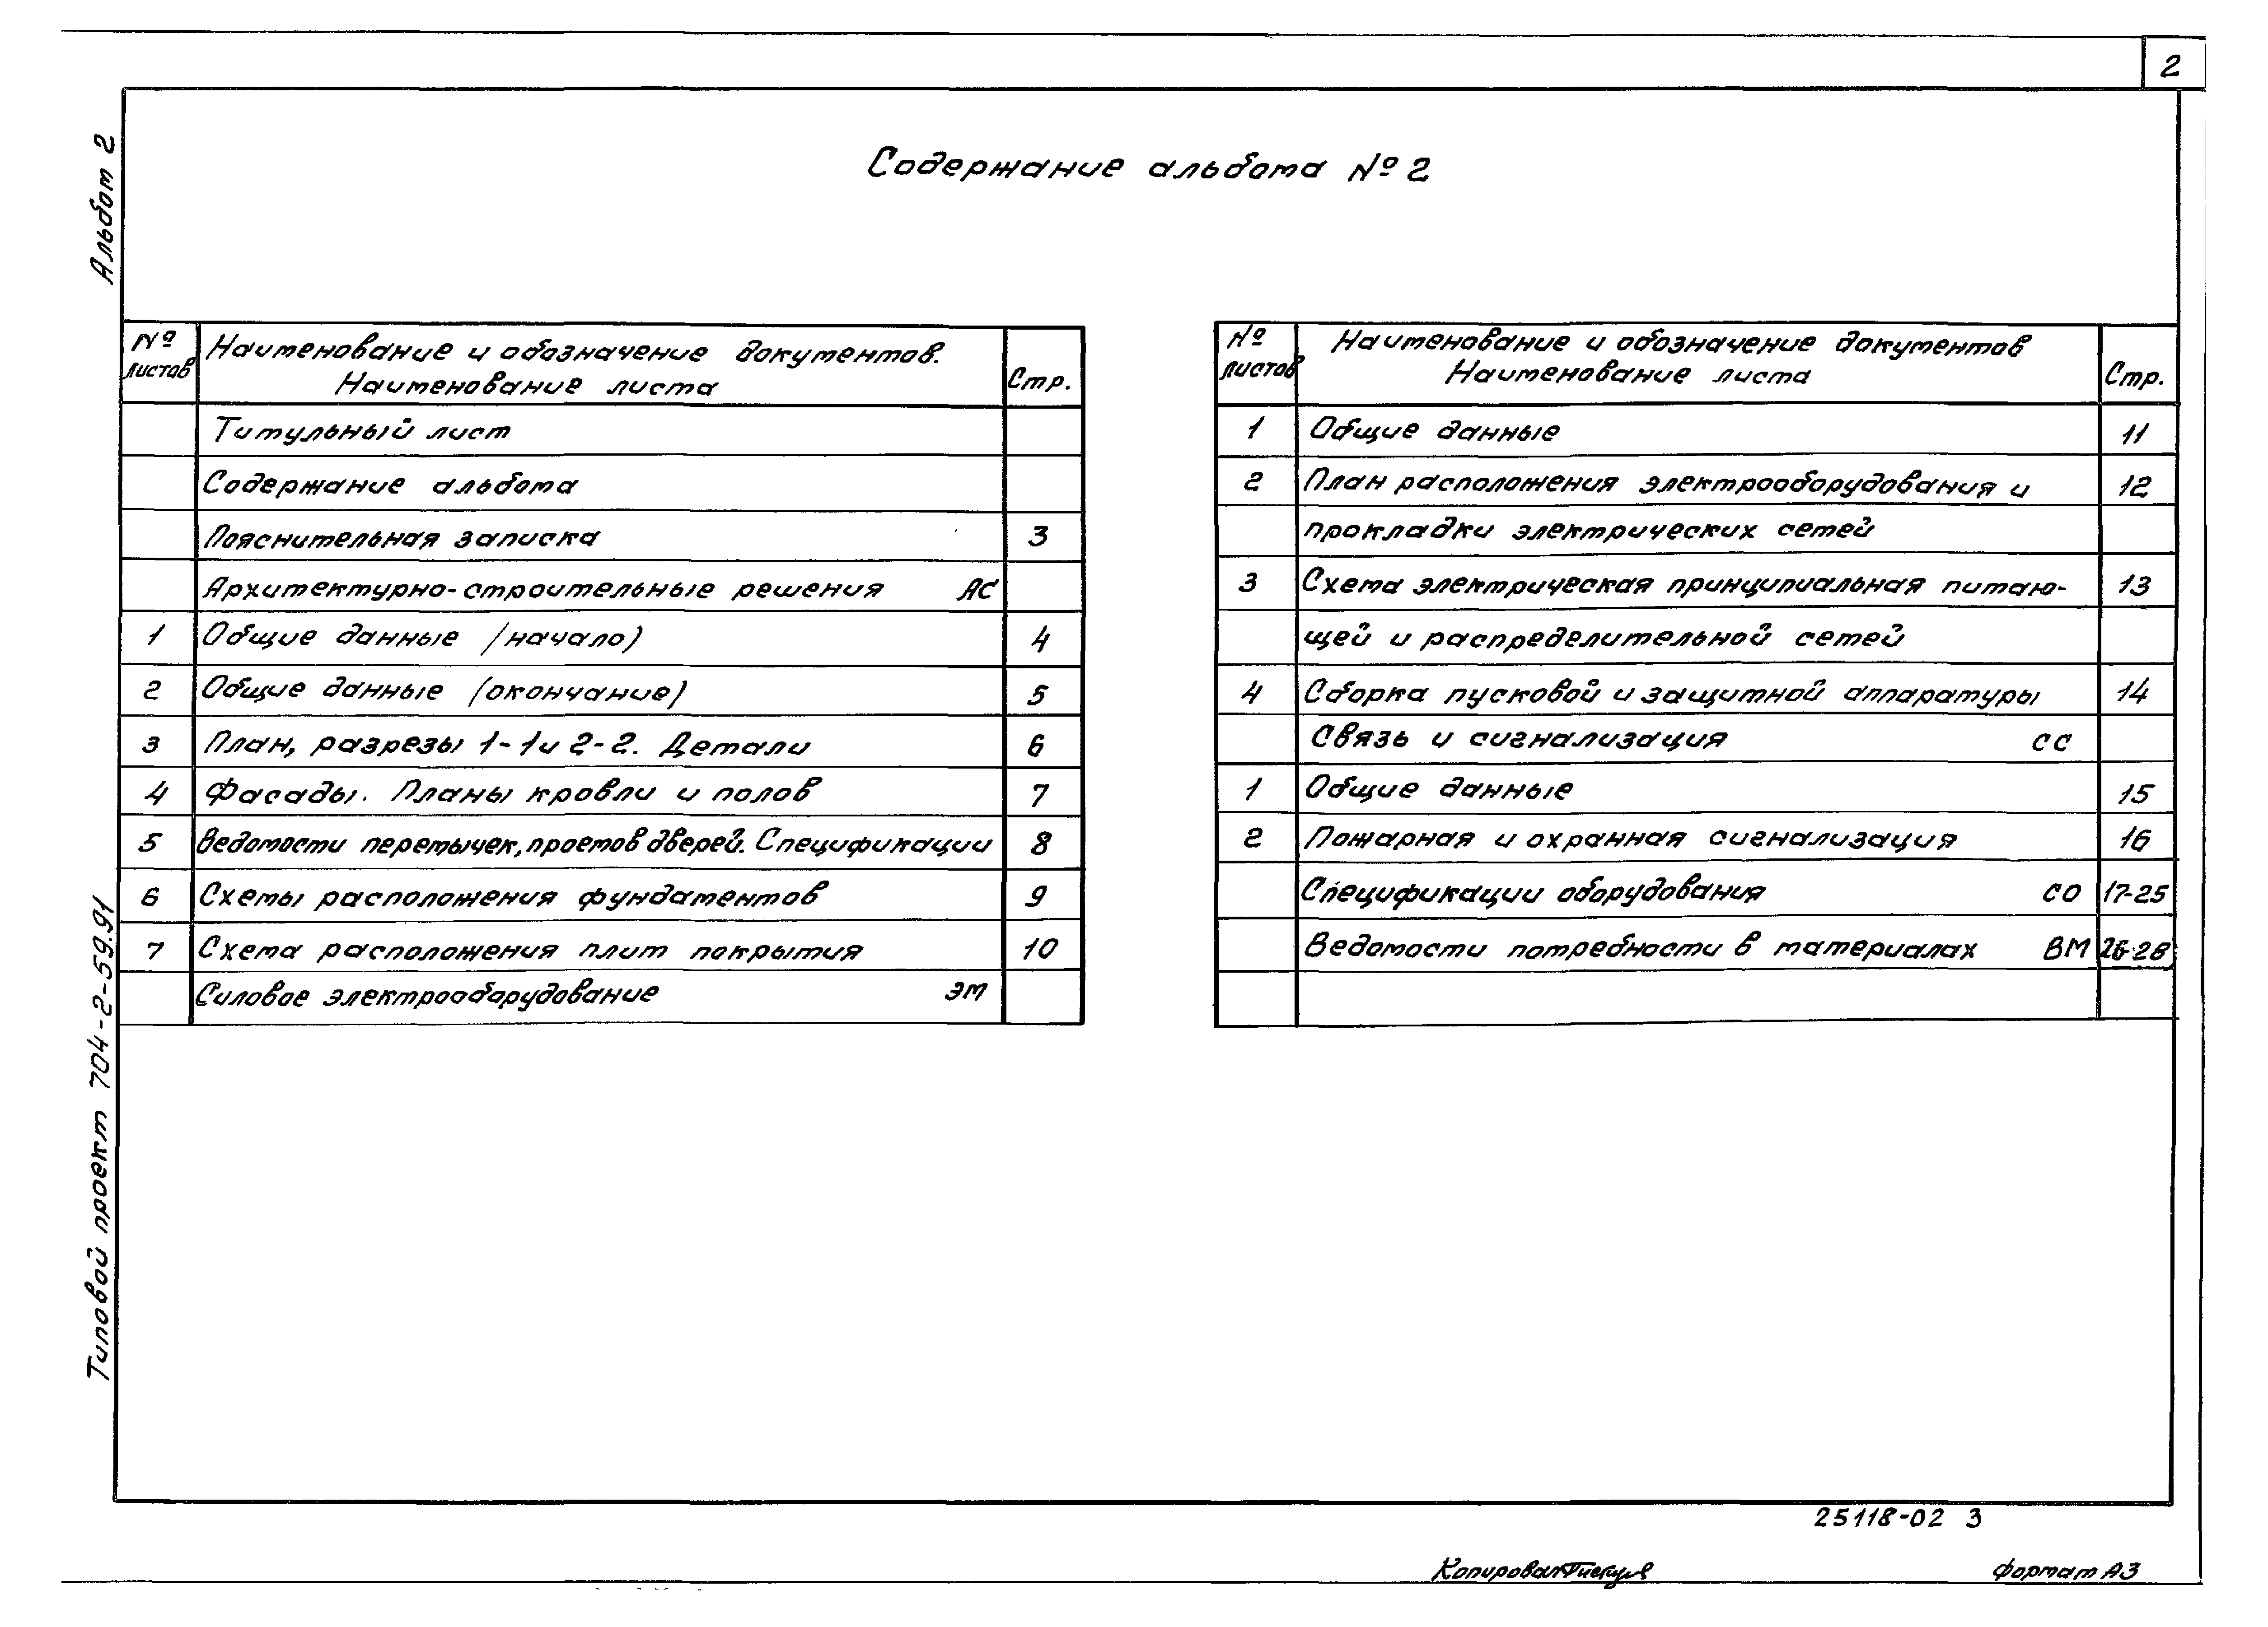 2
Альбом 2
Содержание альбома № 2
№ листов
Наименование и обозначение документов.
Наименование листа
Стр.
Титульный лист
Содержание альбома
Пояснительная записка 3
Архитектурно-строительные решения АС
1 Общие данные (начало) 4
2 Общие данные (окончание) 5
3 План, разрезы 1-1 и 2-2. Детали 6
4 Фасады. Планы кровли и полов 7
5 Ведомости перемычек, проемов дверей. Спецификации 8
6 Схемы расположения фундаментов 9
7 Схема расположения плит покрытия 10
Силовое электрооборудование ЭМ
№ листов
Наименование и обозначение документов
Наименование листа
Стр.
1 Общие данные 11
2 План расположения электрооборудования и 12
прокладки электрических сетей
3 Схема электрическая принципиальная питаю- 13
щей и распределительной сетей
4 Сборка пусковой и защитной аппаратуры 14
Связь и сигнализация СС
1 Общие данные 15
2 Пожарная и охранная сигнализация 16
Спецификации оборудования СО 17-25
Ведомости потребности в материалах ВМ 26-28
Типовой проект 704-2-59.91
25118-02 3
Копировал
Формат А3